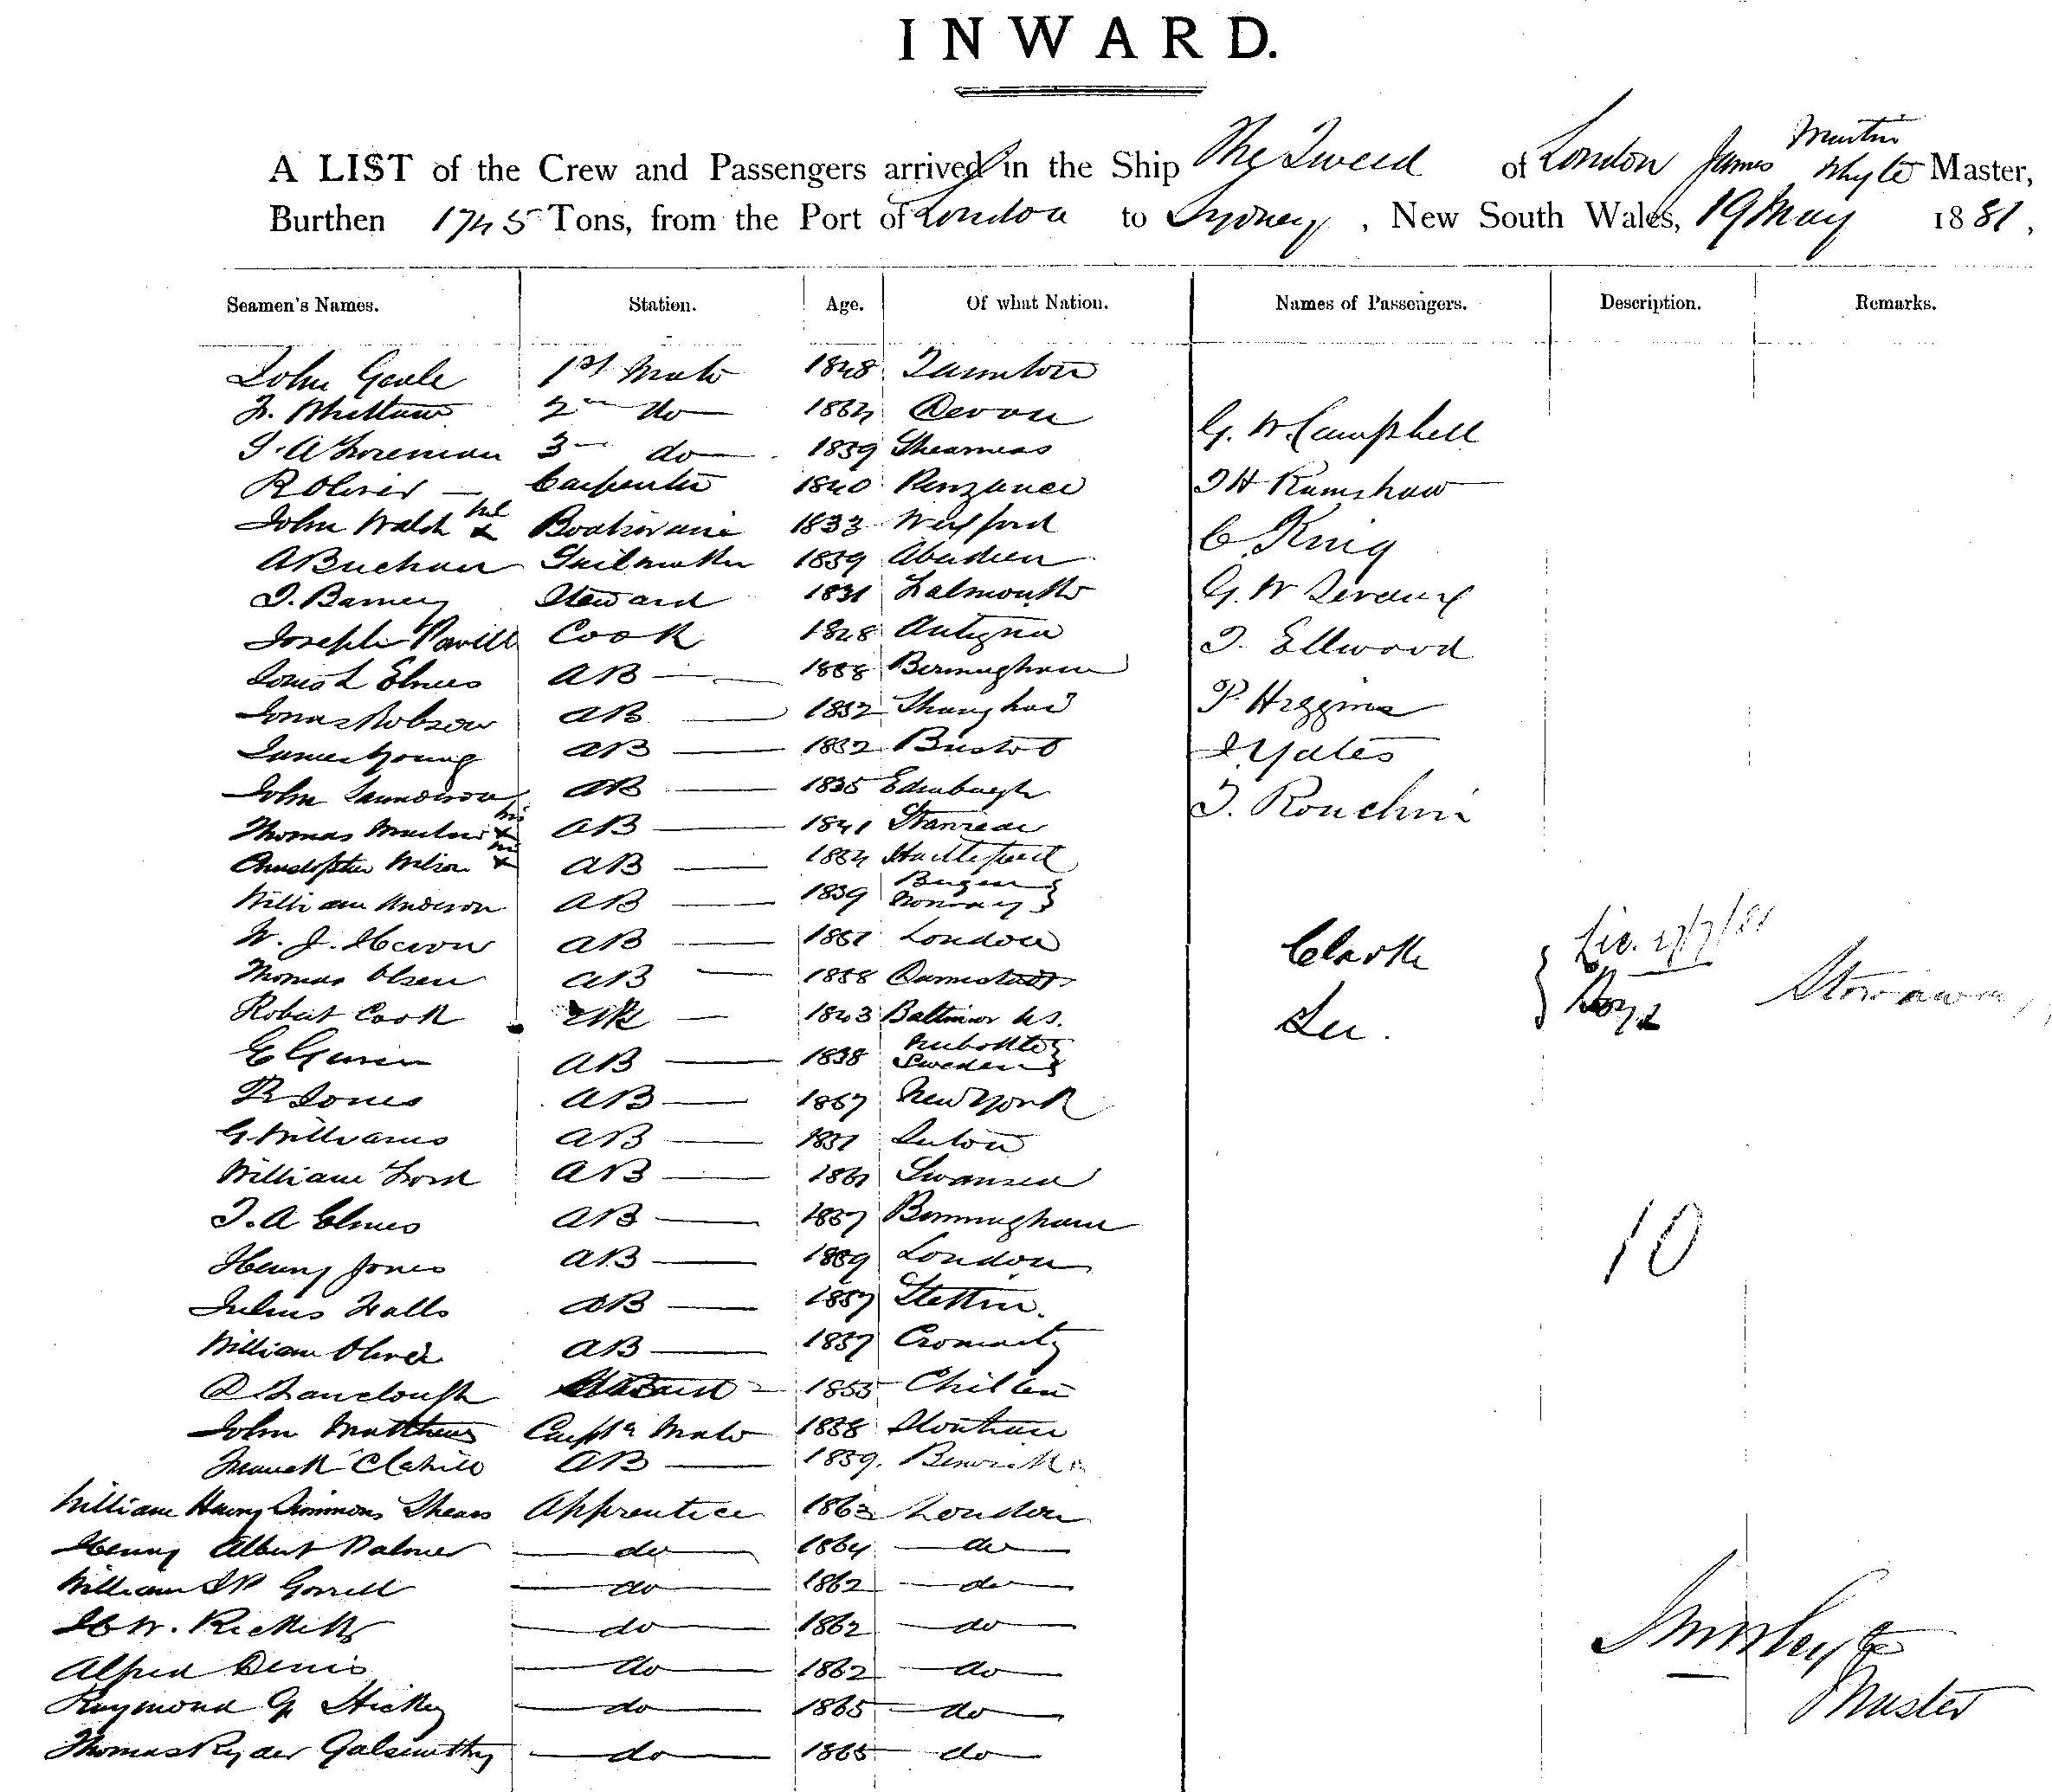 INWARD.
A LIST of the Crew and Passengers arrived in the Ship The Tweed of London James Martin Whyte Master,
Burthen 1745 Tons, from the Port of London to Sydney, New South Wales, 19 May 1881,
Seamen's Names. Station. Age. Of what Nation. Names of Passengers. Description. Remarks.
John Geale 1st Mate 1848 Taunton
2nd do Devon
G. W. Campbell
3 do 1859 Sheerness
R Oliver Carpenter 1840 Penzance
T H Ramshaw
John Walsh x Boatswain 1833 Wexford
C. King
A Buchan Sailmaker 1859 Aberdeen
Steward 1831 Falmouth
G. W
Joseph Cook 1828 Antigua
T. Ellwood
AB 1858 Birmingham
P. Higgins
Robson AB 1852 Shanghai
James Young AB 1852 Bristol
Yates
John AB 1835 Edinburgh
Thomas x AB 1841
Christopher Wilson x AB 1854
William Anderson AB 1859 Bergen Norway
W. J. AB London
Clark Boys Stowaway
Thomas Olsen AB 1858
Robert Cook AB 1843 Baltimore US.
Lee.
AB 1838 Sweden
R Jones AB 1857 New York
G. Williams AB Luton
William AB Swansea
T. A Elmes AB 1857 Birmingham
10
Henry Jones AB 1859 London
Julius AB 1857 Stettin.
William Oliver AB 1857 Cromarty
1855
John Matthews Carptr Mate 1858
AB 1859. Berwick
William Henry Simmons Shears Apprentice 1863 London
Henry Albert Palmer do 1864 do
William Gorrell do 1862 do
H W. Ricketts do 1862 do
Alfred Denis do 1862 do
Raymond G Hickey do 1865 do
Thomas Ryder Galsworthy do 1865 do
Whyte
Master